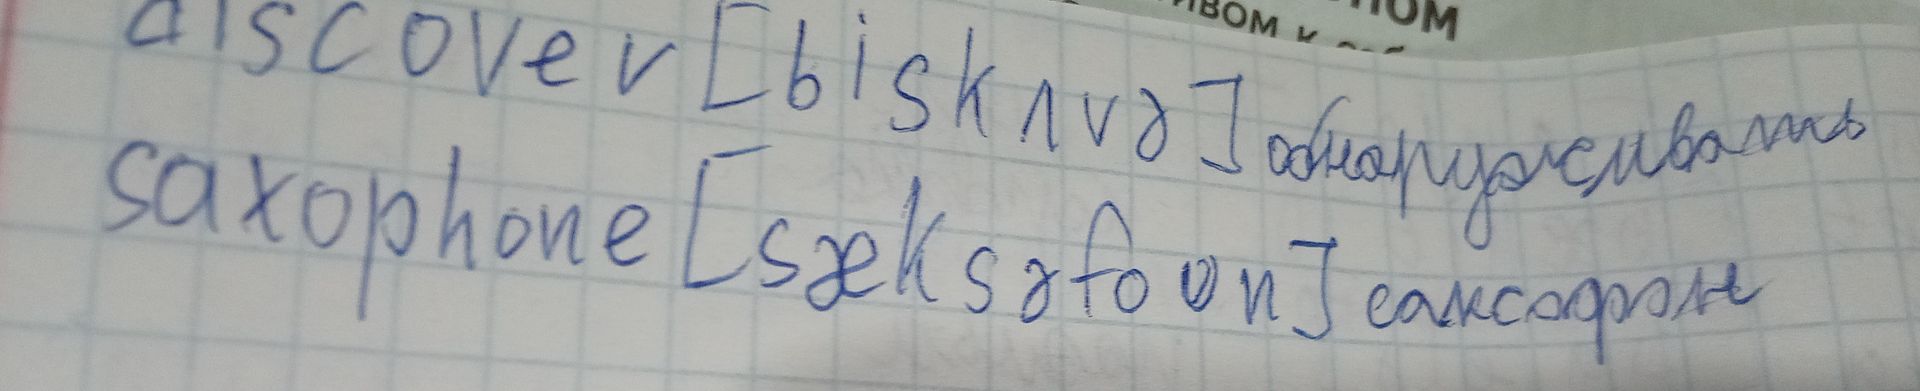 ПОМ
ИВОМ К
discover [biskʌvə] обнаруживать
saxophone [sæksəfoʊn] саксофон